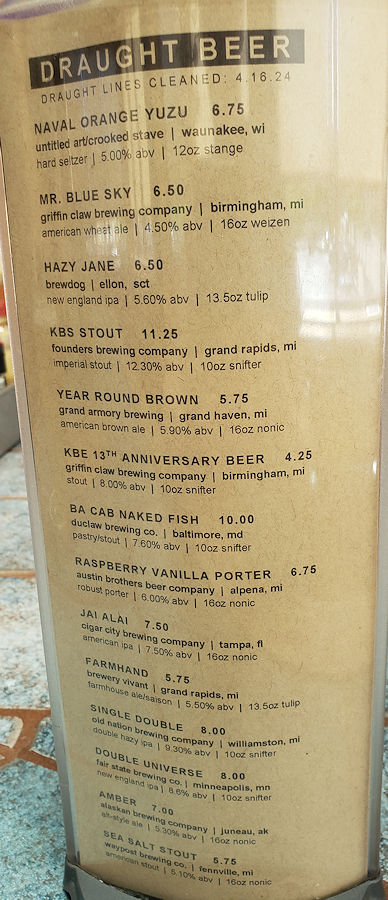 DRAUGHT BEER
DRAUGHT LINES CLEANED: 4.16.24
NAVAL ORANGE YUZU 6.75
untitled art/crooked stave | waunakee, wi
hard seltzer | 5.00% abv | 12oz stange
MR. BLUE SKY 6.50
griffin claw brewing company | birmingham, mi
american wheat ale | 4.50% abv | 16oz weizen
HAZY JANE 6.50
brewdog | ellon, sct
new england ipa | 5.60% abv | 13.5oz tulip
KBS STOUT 11.25
founders brewing company | grand rapids, mi
imperial stout | 12.30% abv | 10oz snifter
YEAR ROUND BROWN 5.75
grand armory brewing | grand haven, mi
american brown ale | 5.90% abv | 16oz nonic
KBE 13TH ANNIVERSARY BEER 4.25
griffin claw brewing company | birmingham, mi
stout | 8.00% abv | 10oz snifter
BA CAB NAKED FISH 10.00
duclaw brewing co. | baltimore, md
pastry/stout | 7.60% abv | 10oz snifter
RASPBERRY VANILLA PORTER 6.75
austin brothers beer company | alpena, mi
robust porter | 6.00% abv | 16oz nonic
JAI ALAI 7.50
cigar city brewing company | tampa, fl
american ipa | 7.50% abv | 16oz nonic
FARMHAND 5.75
brewery vivant | grand rapids, mi
farmhouse ale/saison | 5.50% abv | 13.5oz tulip
SINGLE DOUBLE 8.00
old nation brewing company | williamston, mi
double hazy ipa | 9.30% abv | 10oz snifter
DOUBLE UNIVERSE 8.00
fair state brewing co. | minneapolis, mn
new england ipa | 8.6% abv | 10oz snifter
AMBER 7.00
alaskan brewing company | juneau, ak
alt-style ale | 5.30% abv | 16oz nonic
SEA SALT STOUT 5.75
waypost brewing co. | fennville, mi
american stout | 5.10% abv | 16oz nonic